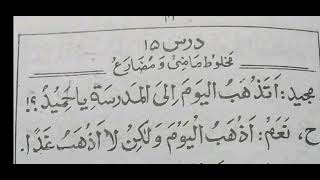 درس ۱۵
مخلوط ماضی و مضارع
مجید: اَتَذْهَبُ الیَومَ اِلیَ المَدرَسَةِ یا حَمِیدُ؟!
ح، نَعَمْ: اَذْهَبُ الْیَوْمَ وَلٰکِنْ لَا اَذْهَبُ غَدًا.